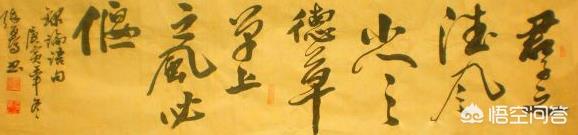 君子之
德风
小人之
德草
草上
之風必
偃
録論語句
庚寅年冬
悟空问答